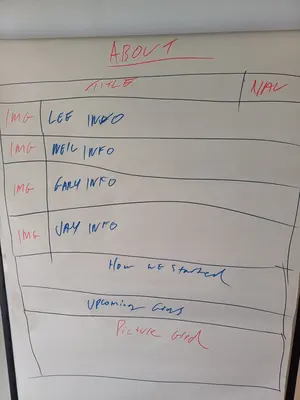 ABOUT
TITLE NAV
IMG LEE INFO
IMG NEIL INFO
IMG GARY INFO
IMG JAY INFO
How we started
Upcoming Gigs
Picture Grid